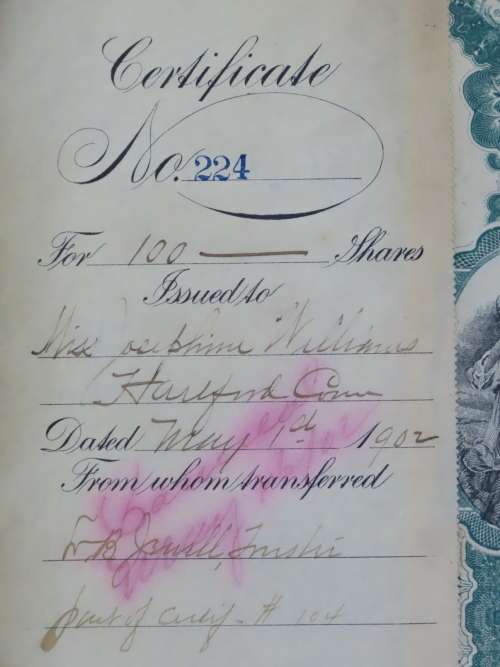 Certificate
No. 224
For 100 — Shares
Issued to
Miss Josephine Williams
Hartford Conn
Dated May 1st 1902
From whom transferred
Trustee
part of Certif. # 104